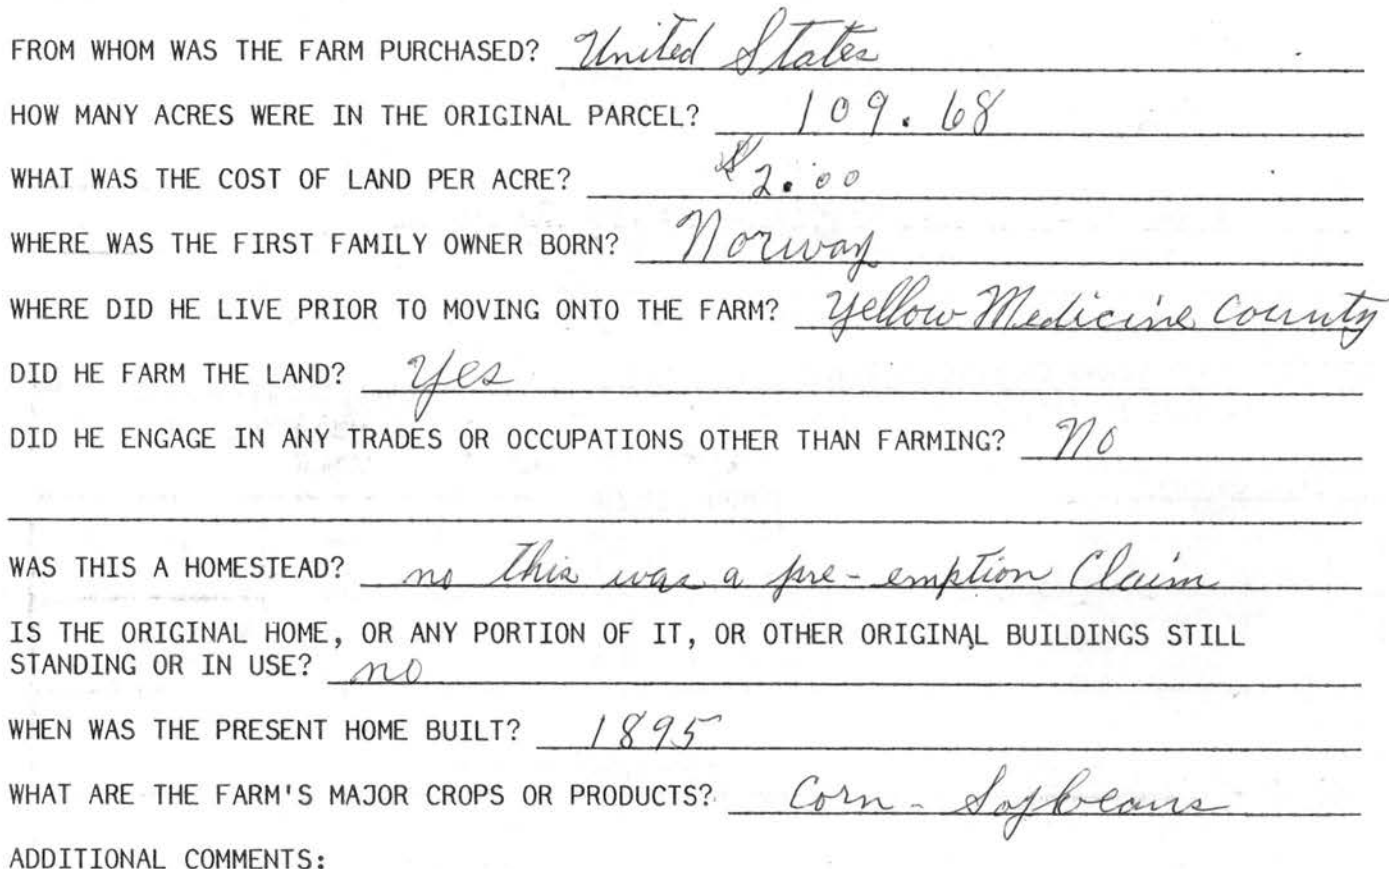 FROM WHOM WAS THE FARM PURCHASED? United States
HOW MANY ACRES WERE IN THE ORIGINAL PARCEL? 109.68
WHAT WAS THE COST OF LAND PER ACRE? $2.00
WHERE WAS THE FIRST FAMILY OWNER BORN? Norway
WHERE DID HE LIVE PRIOR TO MOVING ONTO THE FARM? Yellow Medicine County
DID HE FARM THE LAND? Yes
DID HE ENGAGE IN ANY TRADES OR OCCUPATIONS OTHER THAN FARMING? No
WAS THIS A HOMESTEAD? no this was a pre-emption Claim
IS THE ORIGINAL HOME, OR ANY PORTION OF IT, OR OTHER ORIGINAL BUILDINGS STILL
STANDING OR IN USE? no
WHEN WAS THE PRESENT HOME BUILT? 1895
WHAT ARE THE FARM'S MAJOR CROPS OR PRODUCTS? Corn - Soybeans
ADDITIONAL COMMENTS: